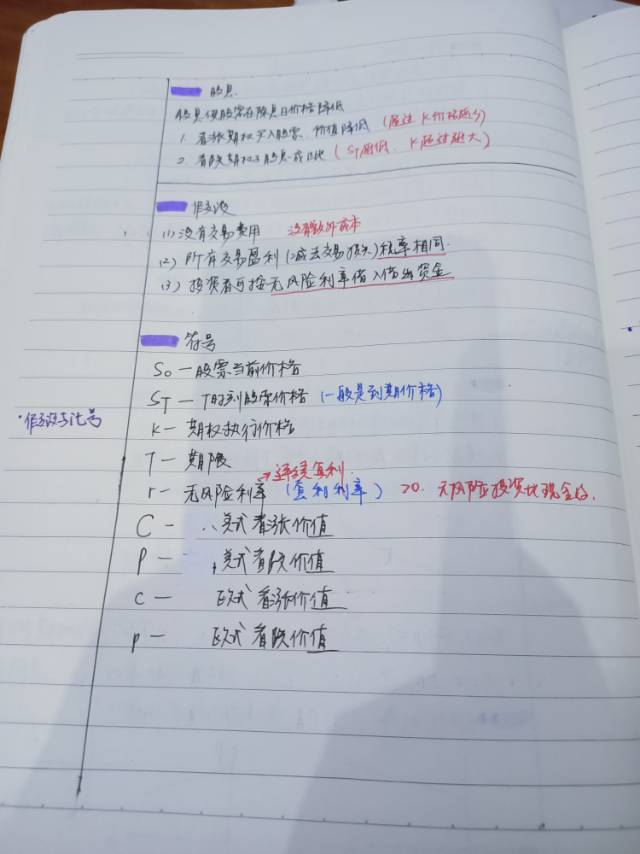 股息
股息使股票在除息日价格降低
1. 看涨期权买入股票 价值降低 (超过K价格部分)
2. 看跌期权与股息成正比 (ST越低、K超过越大)
作假设
(1) 没有交易费用 没有额外成本
(2) 所有交易盈利(减去交易损失)税率相同.
(3) 投资者可按无风险利率借入借出资金
符号
S0 — 股票当前价格
ST — T时刻股票价格 (一般是到期价格)
·作假设与记号
K — 期权执行价格
T — 期限
→ 连续复利.
r — 无风险利率 (复利利率) >0. 无风险投资比现金好.
C — 美式看涨价值
P — 美式看跌价值
c — 欧式看涨价值
p — 欧式看跌价值